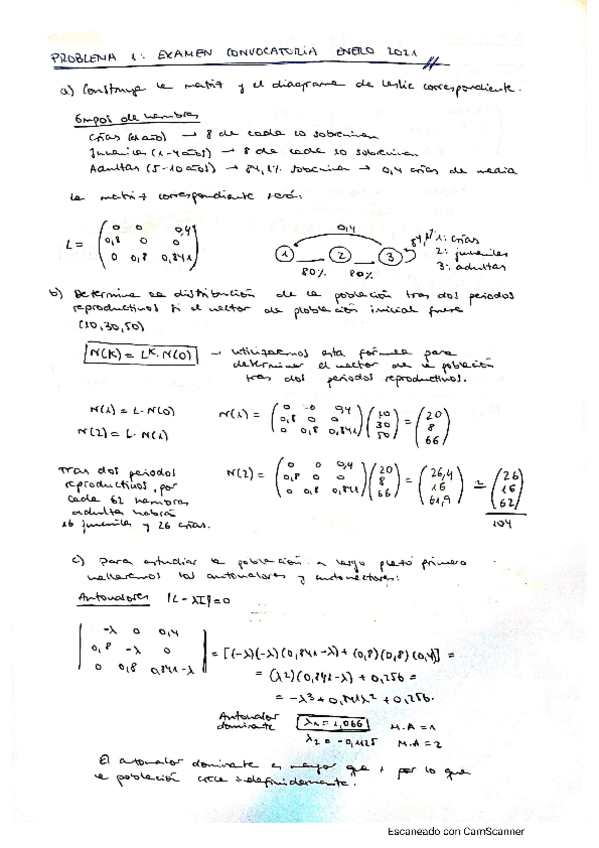 PROBLEMA 1: EXAMEN CONVOCATORIA ENERO 2021
a) Construye la matriz y el diagrama de Leslie correspondiente.
Grupos de hembras
Crías (<1 año) → 8 de cada 10 sobreviven
Juveniles (1-4 años) → 8 de cada 10 sobreviven
Adultas (5-10 años) → 84,1% sobreviven → 0,4 crías de media
La matriz correspondiente será:
L = ( 0 0 0,4
0,8 0 0
0 0,8 0,841 )
0,4
1 2 3 84,1%
80% 80%
1: crías
2: juveniles
3: adultas
b) Determine la distribución de la población tras dos periodos
reproductivos si el vector de población inicial fuera
(10,30,50)
N(K) = L^K · N(0) → utilizaremos esta fórmula para
determinar el vector de la población
tras dos periodos reproductivos.
N(1) = L · N(0)
N(2) = L · N(1)
N(1) = ( 0 0 0,4
0,8 0 0
0 0,8 0,841 ) ( 10 30 50 ) = ( 20 8 66 )
N(2) = ( 0 0 0,4
0,8 0 0
0 0,8 0,841 ) ( 20 8 66 ) = ( 26,4 16 61,9 ) ≃ ( 26 16 62 )
104
Tras dos periodos
reproductivos, por
cada 62 hembras
adultas habrán
16 juveniles y 26 crías.
c) Para estudiar la población a largo plazo primero
hallaremos los autovalores y autovectores:
Autovalores |L - λI| = 0
| -λ 0 0,4
0,8 -λ 0
0 0,8 0,841-λ | = [(-λ)(-λ)(0,841-λ) + (0,8)(0,8)(0,4)] =
= (λ2)(0,841-λ) + 0,256 =
= -λ³ + 0,841λ² + 0,256.
Autovalor
dominante λ1 = 1,066 M.A = 1
λ2 = -0,1125 M.A = 2
El autovalor dominante es mayor que 1 por lo que
la población crece indefinidamente.
Escaneado con CamScanner